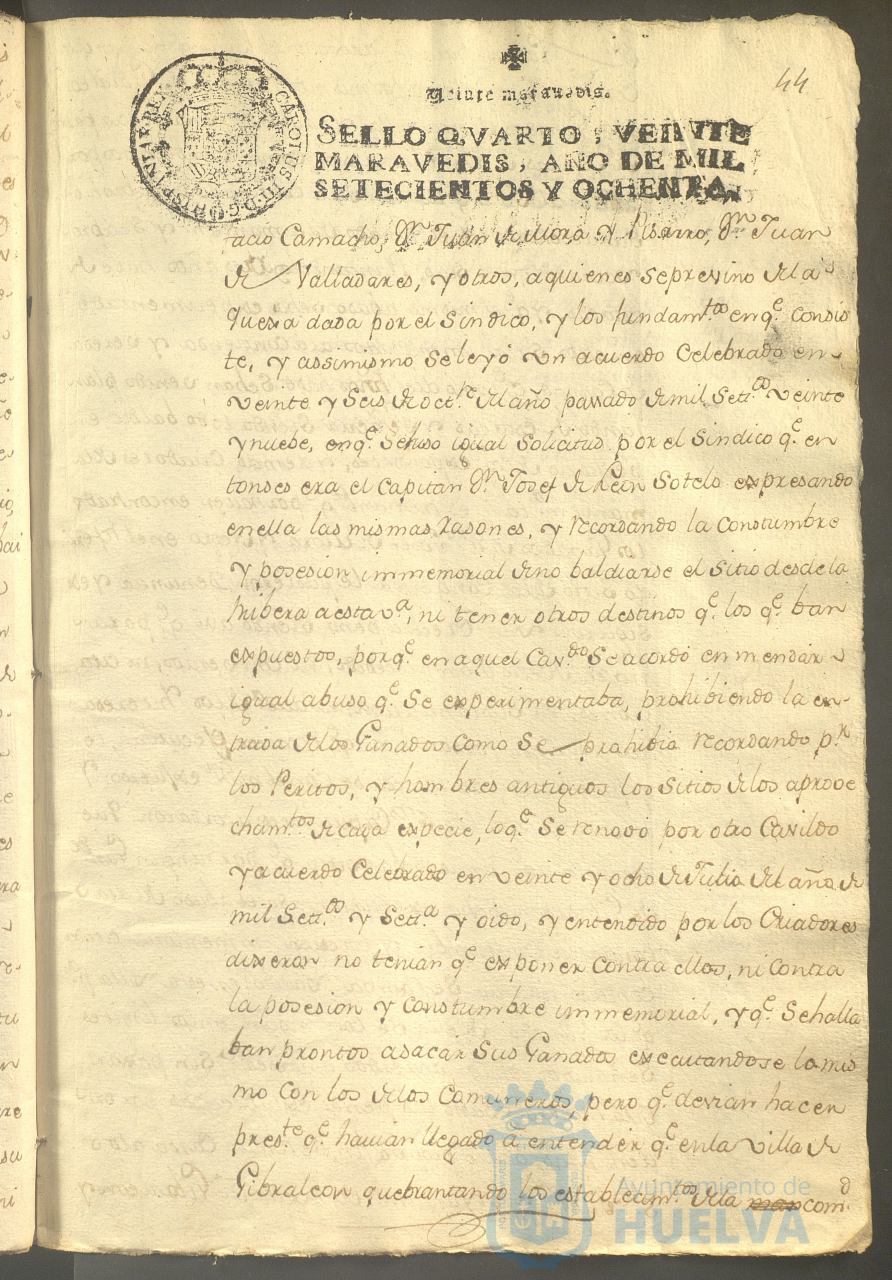 44
Veinte maravedis.
SELLO QVARTO, VEINTE
MARAVEDIS, AÑO DE MIL
SETECIENTOS Y OCHENTA.
CAROLUS III D G HISPANIAR REX
acio Camacho, Dn. Juan de Mora y Pisarro, Dn. Juan
de Valladares, y otros, aquienes seprevino dela
Quexa dada por el Sindico, y los fundamtos. enqe. consis
te, y assimismo Seleyó Un acuerdo Celebrado en
veinte y Seis de octre. del año passado de mil Setcos. veinte
ynuebe, enqe. Sehiso igual Solicitud por el Sindico qe. en
tonses era el Capitan Dn. Josef de León Sotelo expresando
enella las mismas rasones, y recordando la Constumbre
y posesion immemorial deno baldiarse el Sitio desde la
rribera aesta va., ni tener otros destinos qe. los qe. ban
expuestos, porqe. en aquel Cavdo. Se acordó enmendar
igual abuso qe. Se experimentaba, prohibiendo la en
trada delos Ganados como Se prohibia recordando pr.
los Peritos, y hombres antiguos los Sitios delos aprove
chamtos. de cada especie, loqe. Serenovó por otro Cavildo
yacuerdo Celebrado en veinte yocho de Julio del año de
mil Setcos. y Seta. y oido, y entendido por los Criadores
dixeron no tenian qe. exponer contra ellos, ni contra
la posesion y Constumbre immemorial, yqe. Sehalla
ban prontos asacar Sus Ganados executandose lo mis
mo con los delos Comuneros, pero qe. devian hacer
preste. qe. havian llegado á entender qe. enla villa de
Gibraleon quebrantando los establecimtos. dela comd.
Ayuntamiento de
HUELVA